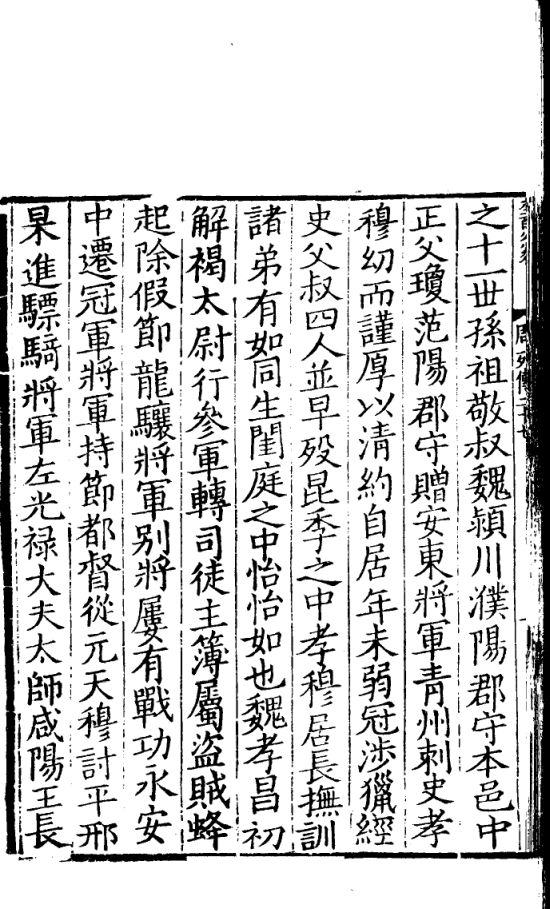 之十一世孫祖敬叔魏潁川濮陽郡守本邑中
正父瓊范陽郡守贈安東將軍青州刺史孝
穆幼而謹厚以清約自居年未弱冠涉獵經
史父叔四人並早歿昆季之中孝穆居長撫訓
諸弟有如同生閨庭之中怡怡如也魏孝昌初
解褐太尉行參軍轉司徒主簿屬盜賊蜂
起除假節龍驤將軍別將屢有戰功永安
中遷冠軍將軍持節都督從元天穆討平邢
杲進驃騎將軍左光祿大夫太師咸陽王長